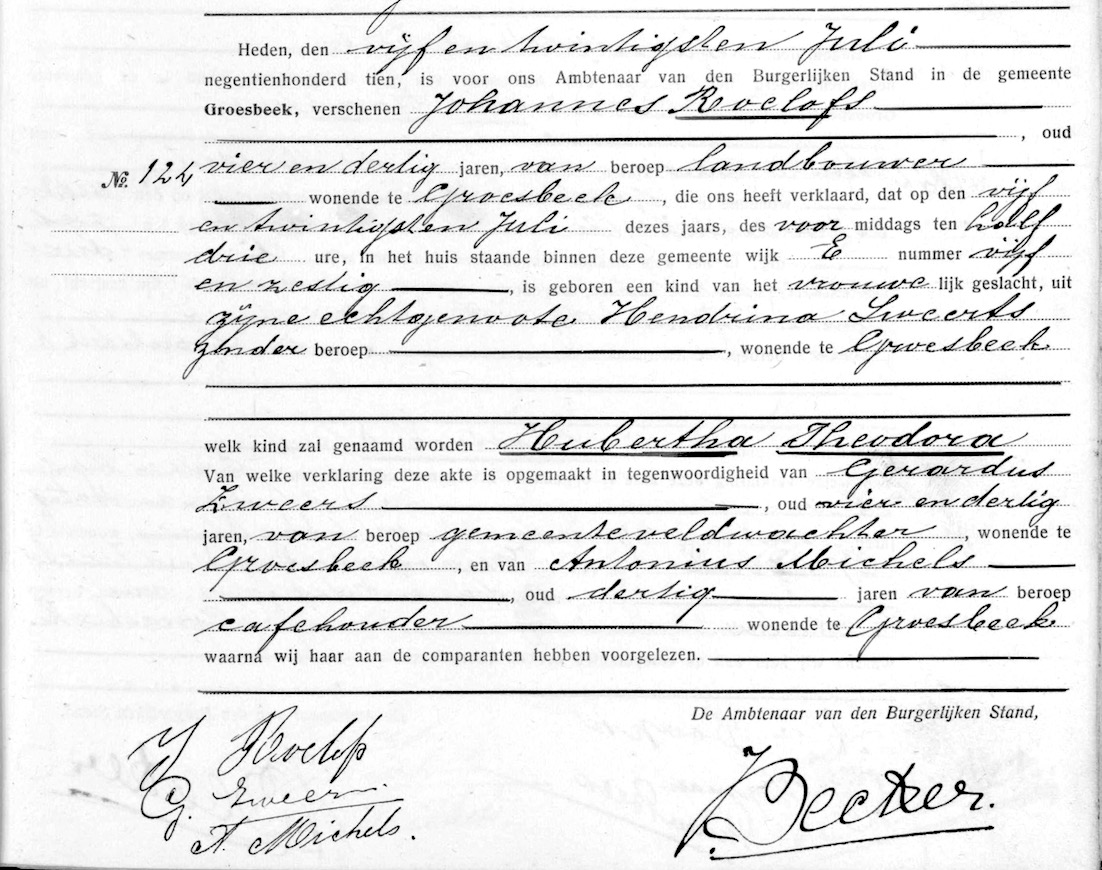 Heden, den vijf en twintigsten Juli
negentienhonderd tien, is voor ons Ambtenaar van den Burgerlijken Stand in de gemeente
Groesbeek, verschenen Johannes Roelofs
, oud
№. 122 vier en dertig jaren, van beroep landbouwer
wonende te Groesbeek, die ons heeft verklaard, dat op den vijf
en twintigsten Juli dezes jaars, des voor middags ten half
drie ure, in het huis staande binnen deze gemeente wijk E nummer vijf
en zestig, is geboren een kind van het vrouwe lijk geslacht, uit
zijne echtgenoote Hendrina Sweerts
zonder beroep, wonende te Groesbeek
welk kind zal genaamd worden Hubertha Theodora
Van welke verklaring deze akte is opgemaakt in tegenwoordigheid van Gerardus
Zweers, oud vier en dertig
jaren, van beroep gemeenteveldwachter, wonende te
Groesbeek, en van Antonius Michels
, oud dertig jaren van beroep
cafehouder wonende te Groesbeek
waarna wij haar aan de comparanten hebben voorgelezen.
De Ambtenaar van den Burgerlijken Stand,
J Roelofs
G. Zweers
A. Michels.
J Becker.